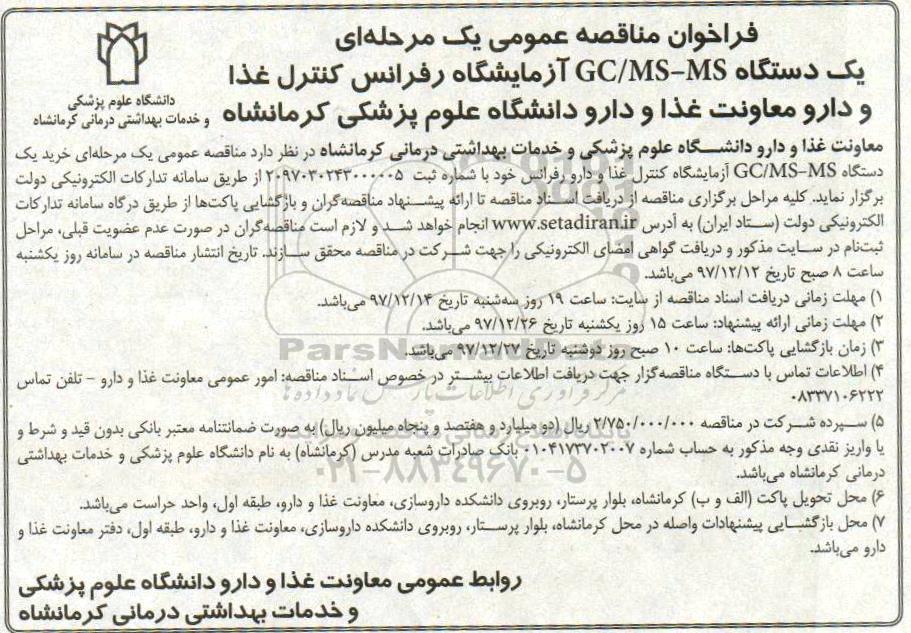 فراخوان مناقصه عمومی یک مرحله‌ای
یک دستگاه GC/MS-MS آزمایشگاه رفرانس کنترل غذا
و دارو معاونت غذا و دارو دانشگاه علوم پزشکی کرمانشاه
دانشگاه علوم پزشکی
و خدمات بهداشتی درمانی کرمانشاه
معاونت غذا و دارو دانشگاه علوم پزشکی و خدمات بهداشتی درمانی کرمانشاه در نظر دارد مناقصه عمومی یک مرحله‌ای خرید یک
دستگاه GC/MS-MS آزمایشگاه کنترل غذا و دارو رفرانس خود با شماره ثبت ۲۰۹۷۰۳۰۲۴۳۰۰۰۰۰۵ از طریق سامانه تدارکات الکترونیکی دولت
برگزار نماید. کلیه مراحل برگزاری مناقصه از دریافت اسناد مناقصه تا ارائه پیشنهاد مناقصه‌گران و بازگشایی پاکت‌ها از طریق درگاه سامانه تدارکات
الکترونیکی دولت (ستاد ایران) به آدرس www.setadiran.ir انجام خواهد شد و لازم است مناقصه‌گران در صورت عدم عضویت قبلی، مراحل
ثبت‌نام در سایت مذکور و دریافت گواهی امضای الکترونیکی را جهت شرکت در مناقصه محقق سازند. تاریخ انتشار مناقصه در سامانه روز یکشنبه
ساعت ۸ صبح تاریخ ۹۷/۱۲/۱۲ می‌باشد.
۱) مهلت زمانی دریافت اسناد مناقصه از سایت: ساعت ۱۹ روز سه‌شنبه تاریخ ۹۷/۱۲/۱۴ می‌باشد.
۲) مهلت زمانی ارائه پیشنهاد: ساعت ۱۵ روز یکشنبه تاریخ ۹۷/۱۲/۲۶ می‌باشد.
۳) زمان بازگشایی پاکت‌ها: ساعت ۱۰ صبح روز دوشنبه تاریخ ۹۷/۱۲/۲۷ می‌باشد.
ParsNamadData
۴) اطلاعات تماس با دستگاه مناقصه‌گزار جهت دریافت اطلاعات بیشتر در خصوص اسناد مناقصه: امور عمومی معاونت غذا و دارو – تلفن تماس
۰۸۳۳۷۱۰۶۲۲۲
۵) سپرده شرکت در مناقصه ۲/۷۵۰/۰۰۰/۰۰۰ ریال (دو میلیارد و هفتصد و پنجاه میلیون ریال) به صورت ضمانتنامه معتبر بانکی بدون قید و شرط و
یا واریز نقدی وجه مذکور به حساب شماره ۰۱۰۴۱۷۳۷۰۲۰۰۷ بانک صادرات شعبه مدرس (کرمانشاه) به نام دانشگاه علوم پزشکی و خدمات بهداشتی
درمانی کرمانشاه می‌باشد.
۰۲۱-۸۸۳۴۹۶۷۰-۵
۶) محل تحویل پاکت (الف و ب) کرمانشاه، بلوار پرستار، روبروی دانشکده داروسازی، معاونت غذا و دارو، طبقه اول، واحد حراست می‌باشد.
۷) محل بازگشایی پیشنهادات واصله در محل کرمانشاه، بلوار پرستار، روبروی دانشکده داروسازی، معاونت غذا و دارو، طبقه اول، دفتر معاونت غذا و
دارو می‌باشد.
روابط عمومی معاونت غذا و دارو دانشگاه علوم پزشکی
و خدمات بهداشتی درمانی کرمانشاه